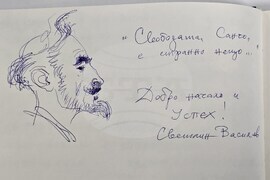 "Свободата, Санчо,
е странно нещо...!
Добро начало и
Успех!
Светлин Василев